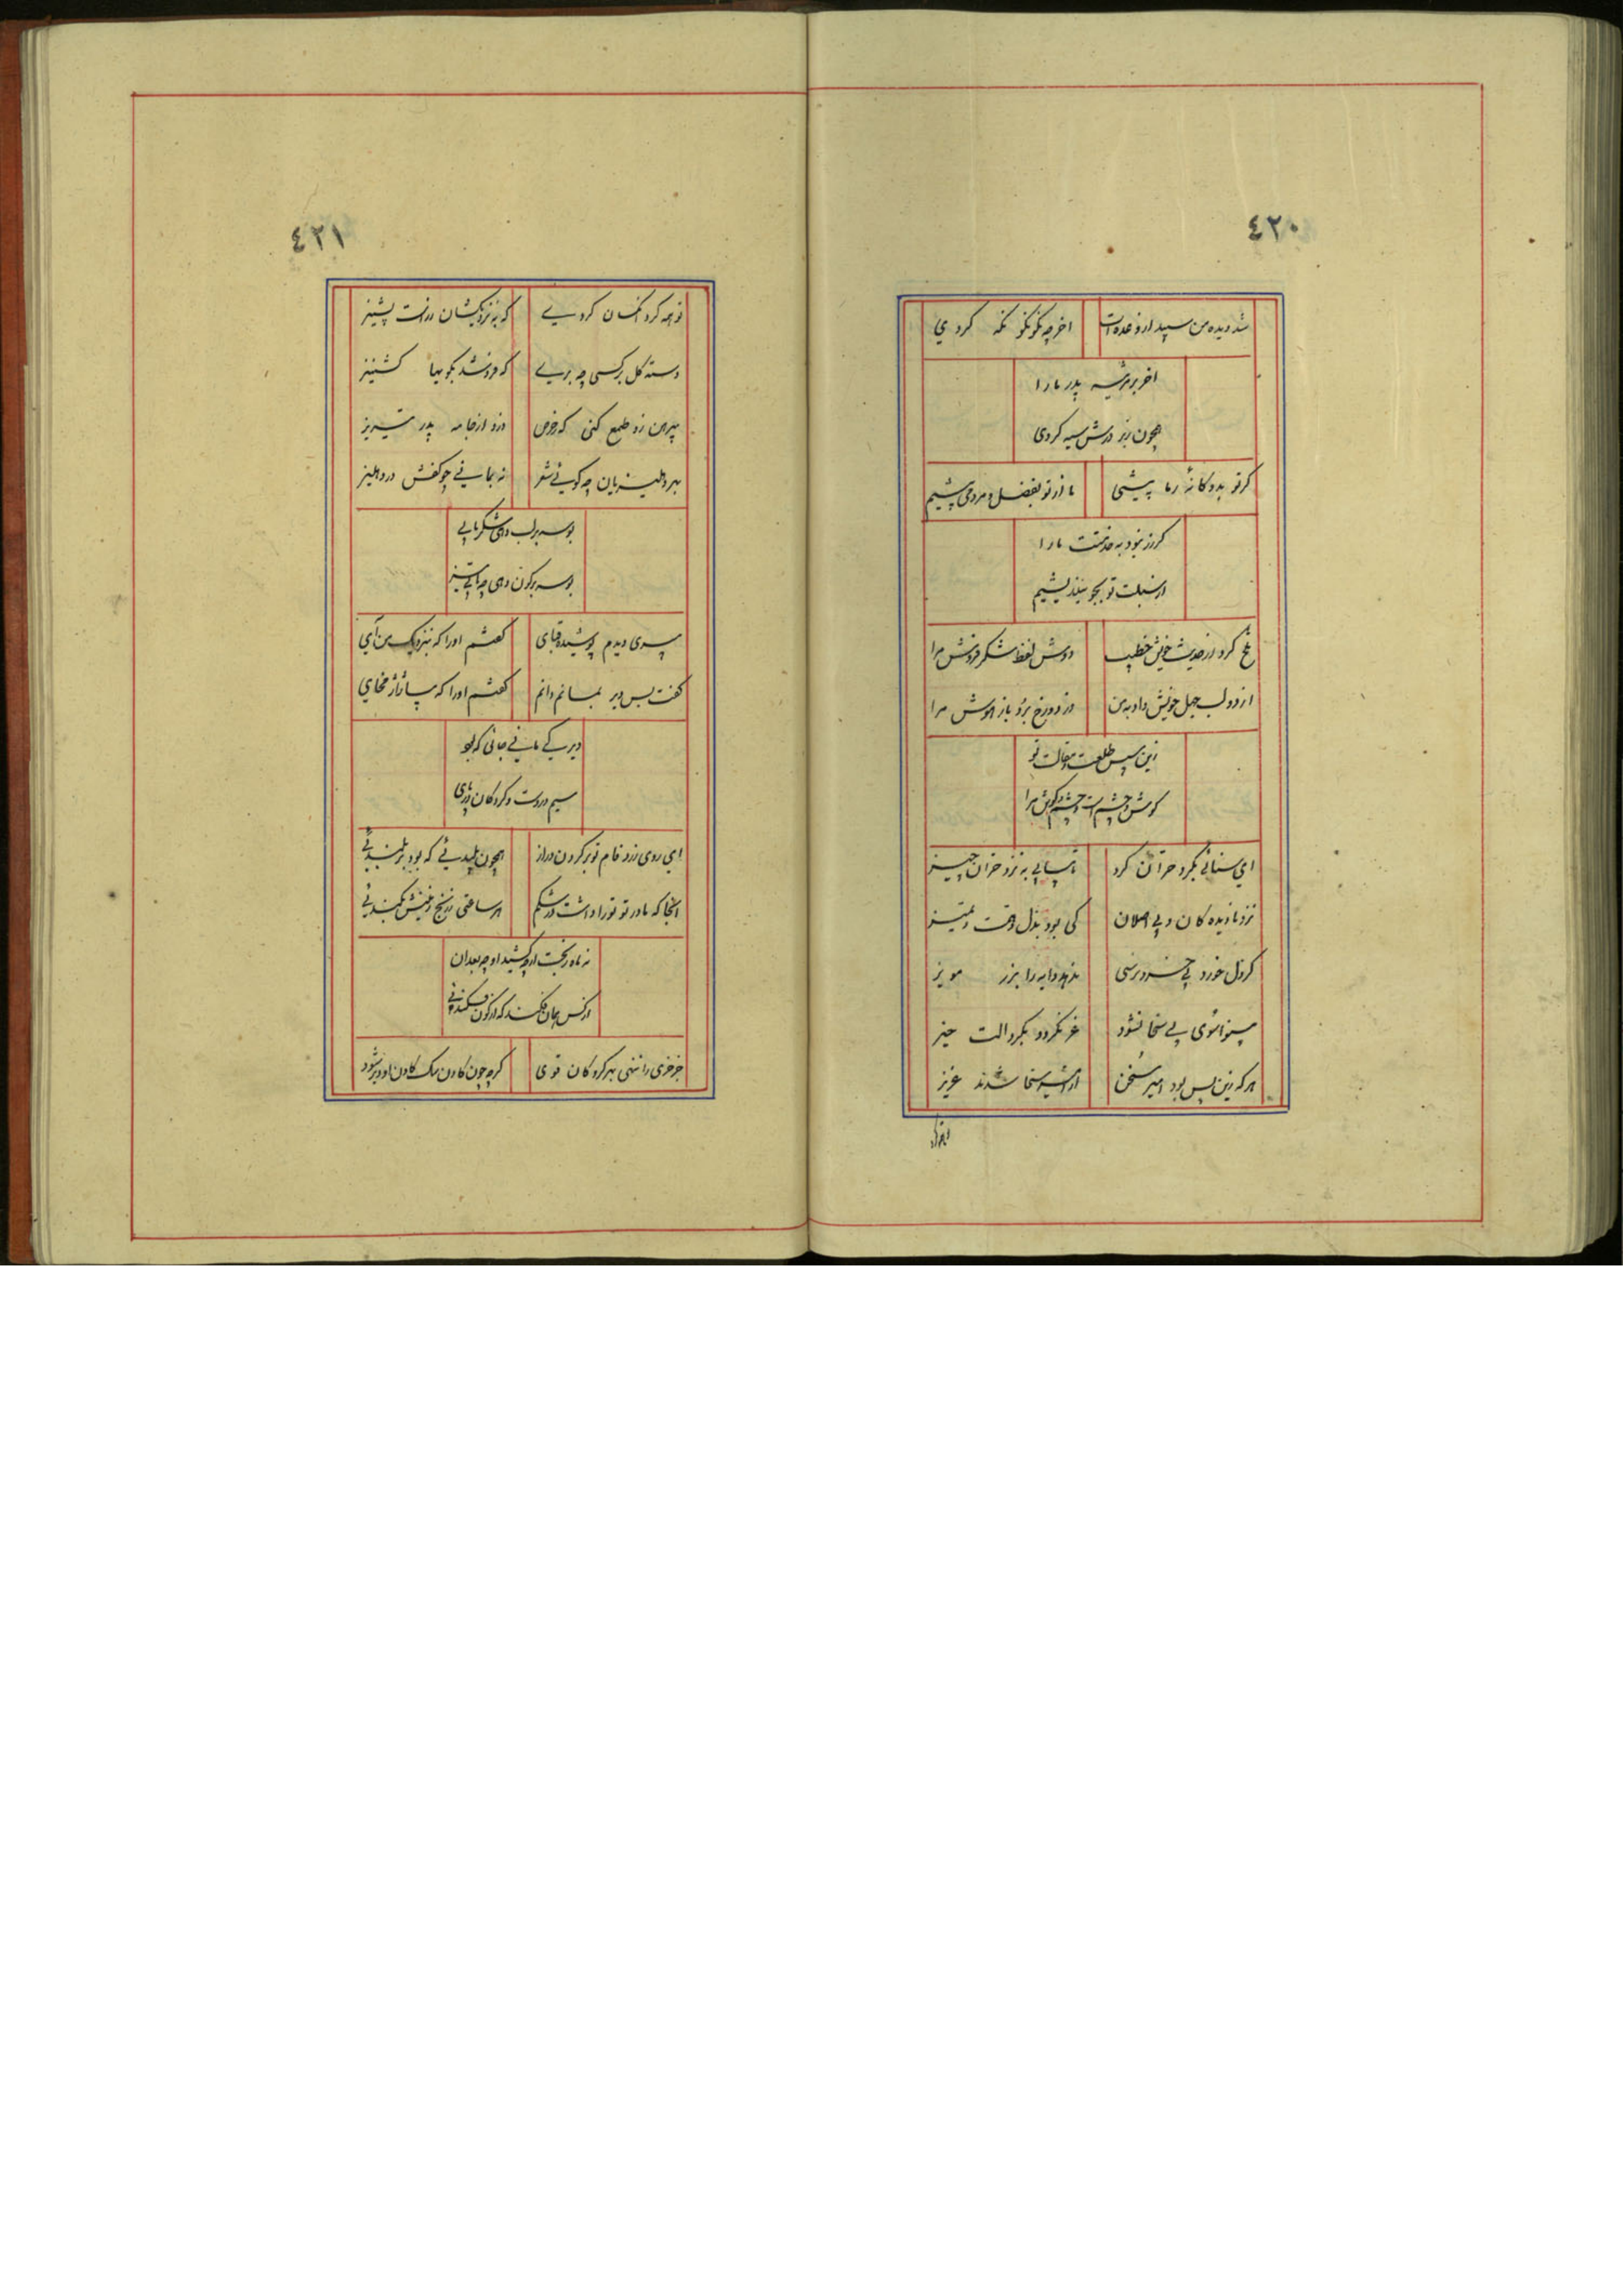 ٤٢٠
شد دیده من سپید از وعده‌ات اخر چه نکو نکو نکه کردی
اخر پدر مارا
همچون زیر درش سیه کردی
کر تو بده کانه زما پیشی ما از تو بفضل و مردمی پیشیم
کر زر نبود به خدمتت مارا
از سبلت تو بجو نیندیشیم
تلخ کرد از حدیث خویش خطیب دوش لفظ شکر فروش مرا
از دو لب جهل خویش داد بمن در دوزخ برو باز هوش مرا
زین سپس طلعت و مقالت تو
کوش و چشم است و چشم و کوش مرا
ای سنائی بکرد خزان کرد تا بیابی به نزد خزان چیز
نزد نادیده کان و بی اصلان کی بود بذل وقت و تمییز
کر دل خورد بی خرد ندهد دایه را بزر مویز
پیشوائی بی سخا نشود غر نکردد بکرد الت حیز
هر که زین پس بود امیر سخن از سخا شدند عزیز
تو چه کرد
٤٢١
تو چه کرد انکسان کردی که به نزدیکشان زر است پشیز
دسته کل بر کسی چه بری که فروشد بجو بها کشنیز
پیرهن زو طمع کنی که ز حرص دزد از جامه پدر تیریز
بهر دهلیزبان چه کوئی شعر نه بمانی چو کفش در دهلیز
بوسه بر لب دهی شکر یابی
بوسه بر کون دهی چه یابی تیز
پسری دیدم پوشیده قبای کفتم او را که بنزدیک من آی
کفت بس دیر بمانم دانم کفتم او را که بیا ژاژ مخای
دیر کی مانی جائی که بود
سیم در دست و کرو کان در پای
ای روی زرد فام تو بر کردن دراز همچون پلیدئی که بود بر بلندئی
انجا که مادر تو تو را داشت در شکم هر ساعتی ز رنج بکندئی
نه ماه رنجت از چه کشید او چه بعد ازان
از کس بجان فکند که از کون فکندئی
جز خری را ننهی بهر کرو کان قوی کرچه چون کادن سک کادن او دیر شود